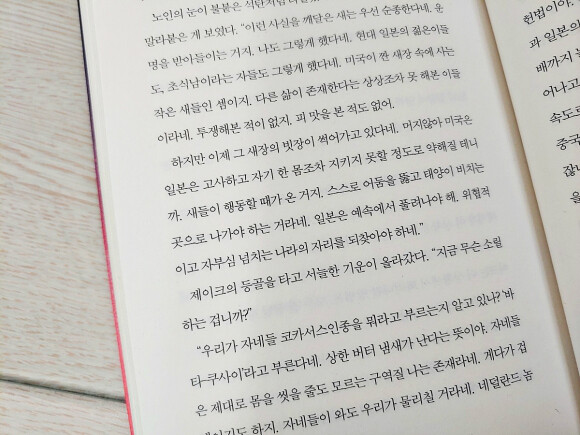 노인의 눈이 불붙은 석탄처럼
말라붙은 게 보였다. "이런 사실을 깨달은 새는 우선 순종한다네, 운
명을 받아들이는 거지. 나도 그렇게 했다네. 현대 일본의 젊은이들
도, 초식남이라는 자들도 그렇게 했다네. 미국이 짠 새장 속에 사는
작은 새들인 셈이지. 다른 삶이 존재한다는 상상조차 못 해본 이들
이라네. 투쟁해본 적이 없지. 피 맛을 본 적도 없어.
하지만 이제 그 새장의 빗장이 썩어가고 있다네. 머지않아 미국은
일본은 고사하고 자기 한 몸조차 지키지 못할 정도로 약해질 테니
까. 새들이 행동할 때가 온 거지. 스스로 어둠을 뚫고 태양이 비치는
곳으로 나가야 하는 거라네. 일본은 예속에서 풀려나야 해. 위협적
이고 자부심 넘치는 나라의 자리를 되찾아야 하네."
제이크의 등골을 타고 서늘한 기운이 올라갔다. "지금 무슨 소릴
하는 겁니까?"
"우리가 자네들 코카서스인종을 뭐라고 부르는지 알고 있나? '바
타-쿠사이'라고 부른다네. 상한 버터 냄새가 난다는 뜻이야. 자네들
은 제대로 몸을 씻을 줄도 모르는 구역질 나는 존재라네. 게다가 겁
하지. 자네들이 와도 우리가 물리칠 거라네. 네덜란드 놈
헌법이야.
과 일본의
배까지
어나고
속도로
중국